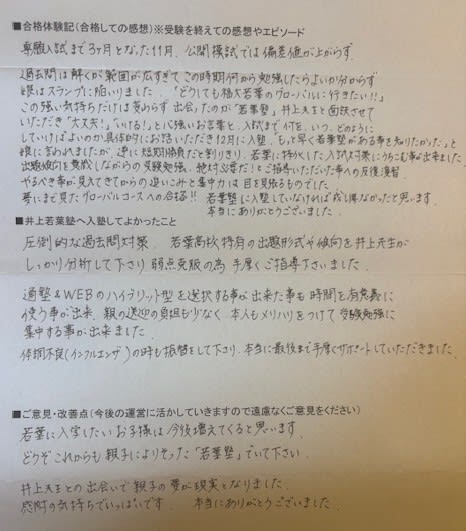 ■合格体験記（合格しての感想）※受験を終えての感想やエピソード
専願入試まで3ヶ月となった11月、公開模試では偏差値が上がらず
過去問は解くが範囲が広すぎてこの時期何から勉強したらよいか分からず
娘はスランプに陥いりました。「どうしても
若葉のグローバルに行きたい!!」
この強い気持ちだけは変わらず 出会ったのが「若葉塾」井上先生と面談させて
いただき「大丈夫!」「いける!」と心強いお言葉と、入試まで何を、いつ、どのように
していけばよいのか具体的にお話しいただき12月に入塾。「もっと早く若葉塾がある事を知りたかった」と
娘に言われましたが、逆に短期勝負だと割りきり、若葉に特化した入試対策にうちこむ事が出来ました。
出題傾向を意識しながらの受験勉強、絶対必要だ!とご指導いただいた事への反復演習
やるべき事が見えてきてからの追いこみと集中力は目を見張るものでした。
夢にまで見たグローバルコースへの合格!! 若葉塾に入塾していなければ成し得なかったと思います。
本当にありがとうございました。
■井上若葉塾へ入塾してよかったこと
圧倒的な過去問対策。若葉高校特有の出題形式や傾向を井上先生が
しっかり分析して下さり 弱点克服の為 手厚くご指導下さいました。
通塾&WEBのハイブリット型を選択する事が出来た事も時間を有意義に
使う事が出来、親の送迎の負担も少なく、本人もメリハリをつけて受験勉強に
集中する事が出来ました。
体調不良(インフルエンザ)の時も振替をして下さり、本当に最後まで手厚くサポートしていただきました。
■ご意見・改善点（今後の運営に活かしていきますので遠慮なくご意見をください）
若葉に入学したいお子様は今後増えてくると思います。
どうぞこれからも親子によりそった「若葉塾」でいて下さい。
井上先生との出会いで親子の夢が現実となりました。
感謝の気持ちでいっぱいです。 本当にありがとうございました。